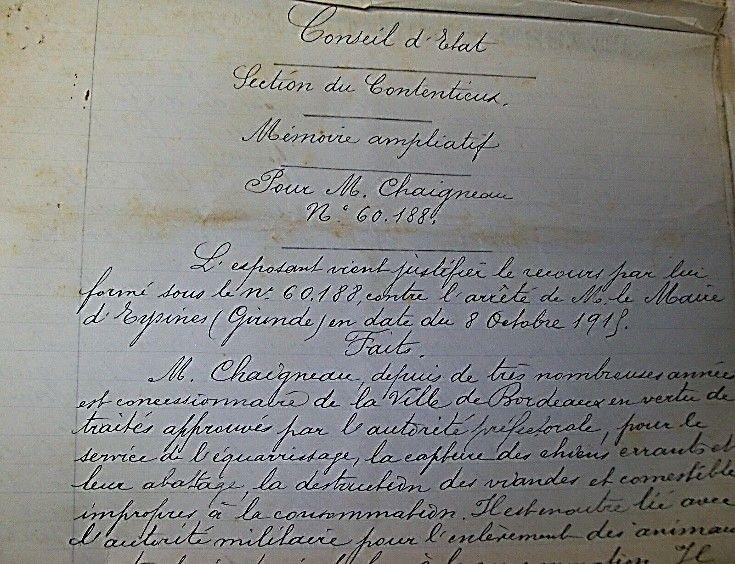 Conseil d'Etat
Section du Contentieux.
Mémoire ampliatif
Pour M. Chaigneau
N° 60.188.
L'exposant vient justifier le recours par lui
formé sous le n° 60.188, contre l'arrêté de M. le Maire
d'Eysines (Gironde) en date du 8 Octobre 1915.
Faits.
M. Chaigneau, depuis de très nombreuses années
est concessionnaire de la Ville de Bordeaux en vertu de
traités approuvés par l'autorité préfectorale, pour le
service de l'équarrissage, la capture des chiens errants et
leur abattage, la destruction des viandes et comestible
impropres à la consommation. Il est en outre lié avec
l'autorité militaire pour l'enlèvement des animau